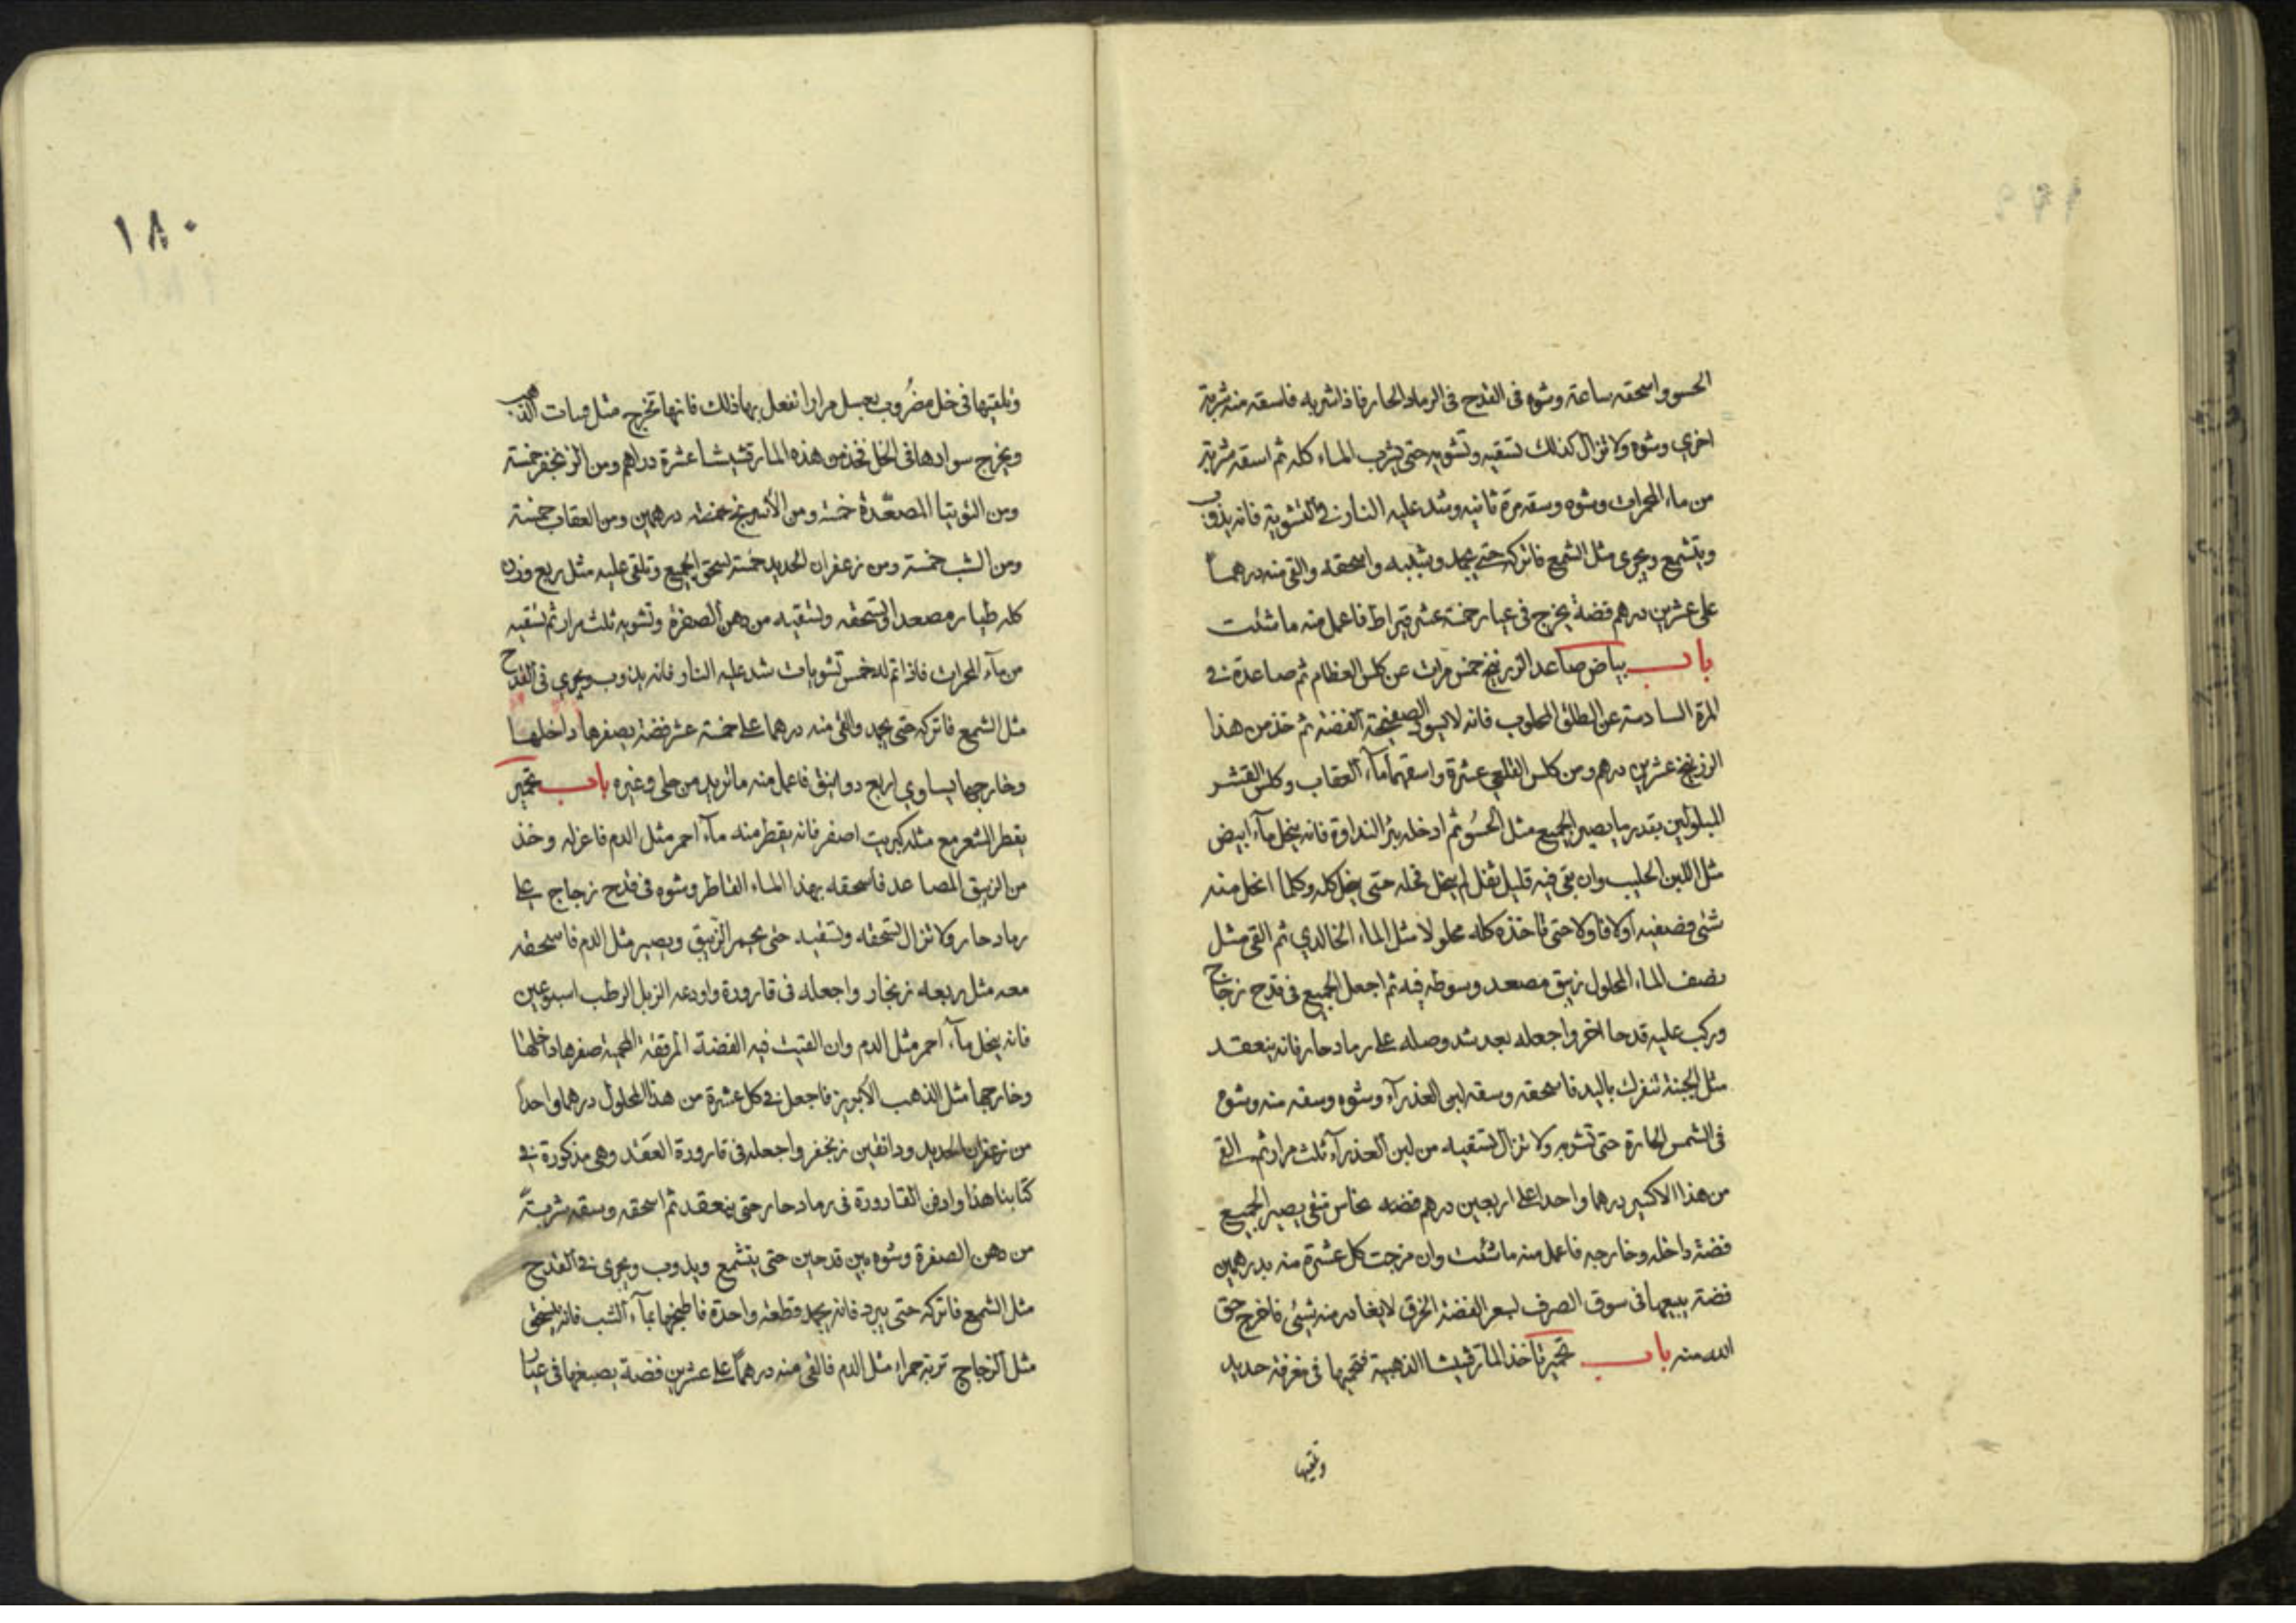 الحسو واسحقه ساعة وشوه فى القدح فى الرماد الحار فاذا شربه فاسقه منه شربة
اخري وشوه ولا تزال كذلك تسقيه وتشويه حتى يشرب الماء كله ثم اسقه شربة
من ماء المحرات وشوه وسقه مرة ثانيه وشد عليه النار فى التشوية فانه يذوب
ويتشمع ويجرى مثل الشمع فاتركه حتى يجمد ويثلبه واسحقه والقى منه درهماً
على عشرين درهم فضة يخرج فى عيار خمسة عشر قيراط فاعمل منه ما شئت
باب بياض صاعد الزرنيخ خمس مرات عن كلس العظام ثم صاعدة فى
المرة السادسة عن الطلق المحلوب فانه لا يسود الصفيحة الفضة ثم خذ من هذا
الزرنيخ عشرين درهم ومن كلس القلعى عشرة واسقهما ماء العقاب وكلس القشر
المحلولين بقدر ما يصير الجميع مثل الحسُو ثم ادخله بئر النداوة فانه ينحل ماء ابيض
مثل اللبن الحليب وان بقى فيه قليل ثفل لم ينحل فحله حتى ينحل كله وكلما انحل منه
شئ فصفيه اولا فاولا حتى تاخذه كله محلولا مثل الماء الخالدي ثم القى مثل
نصف الماء المحلول زيبق مصعد وسوطه فيه ثم اجعل الجميع فى قدح زجاج
وركب عليه قدحا اخر واجعله بعد شد وصله على رماد حار فانه ينعقد
مثل الجبنة تنفرك باليد فاسحقه وسقه لبن العذرآء وشوه وسقه منه وشوه
فى الشمس الحارة حتى تشربه ولا تزال تسقيه من لبن العذرآء ثلث مرار ثم القى
من هذا الاكسير درهما واحدا على اربعين درهم فضه نحاس منقى يصير الجميع
فضة داخله وخارجه فاعمل منه ما شئت وان مزجت كل عشرة منه بدرهمين
فضة بيعها فى سوق الصرف بسعر الفضة الحرق لا يغادر منه شيئ فاخرج حق
الله منه باب تحمير تاخذ المارقشيشا الذهبية فتحميها فى مغرفة حديد
وتلقيها
١٨٠
وتلقيها فى خل مضرُوب بعسل مرارا تفعل بها ذلك فانها تخرج مثل فتات الذهب
ويخرج سوادها فى الخل فخذ من هذه المارقشيشا عشرة دراهم ومن الزنجفر خمسة
ومن التوتيا المصعّدة خمسة ومن الأسرنج خمسة درهمين ومن العقاب خمسة
ومن الشب خمسة ومن زعفران الحديد خمسة تسحق الجميع وتلقى عليه مثل ربع وزن
كله طيار مصعد او تسحقه وتسقيه من دهن الصفرة وتشويه ثلث مرار ثم تسقيه
من مآء المحرات فاذا تم له خمس تشويات شد عليه النار فانه يذوب ويجري فى القدح
مثل الشمع فاتركه حتى يجمد والقى منه درهما على خمسة عشر فضة يصفرها داخلها
وخارجها يساوي اربع دوانيق فاعمل منه ما تريد من حلى وغيره باب تحمير
يقطر الشعر مع مثله كبريت اصفر فانه يقطر منه مآء احمر مثل الدم فاعزله وخذ
من الزيبق المصاعد فاسحقه بهذا الماء القاطر وشوه فى قدح زجاج على
رماد حار ولا تزال تسحقه وتسقيه حتى يحمر الزيبق ويصير مثل الدم فاسحقه
معه مثل ربعه زنجار واجعله فى قارورة واودعه الزبل الرطب اسبوعين
فانه ينحل مآء احمر مثل الدم وان القيت فيه الفضة المرققة المحمية صفرها داخلها
وخارجها مثل الذهب الأبريز فاجعل فى كل عشرة من هذا المحلول درهما واحدا
من زعفران الحديد ودانقين زنجفر واجعله فى قارورة العَقد وهى مذكورة فى
كتابنا هذا وادفن القارورة فى رماد حار حتى ينعقد ثم اسحقه وسقه شربةً
من دهن الصفرة وشوه بين قدحين حتى يتشمع ويذوب ويجرى فى القدح
مثل الشمع فاتركه حتى يبرد فانه يجمد قطعة واحدة فاطبخها بمآء الشب فانه ينحق
مثل الزجاج تربة حمراء مثل الدم فالقى منه درهماً على عشرين فضة يصبغها فى عيار